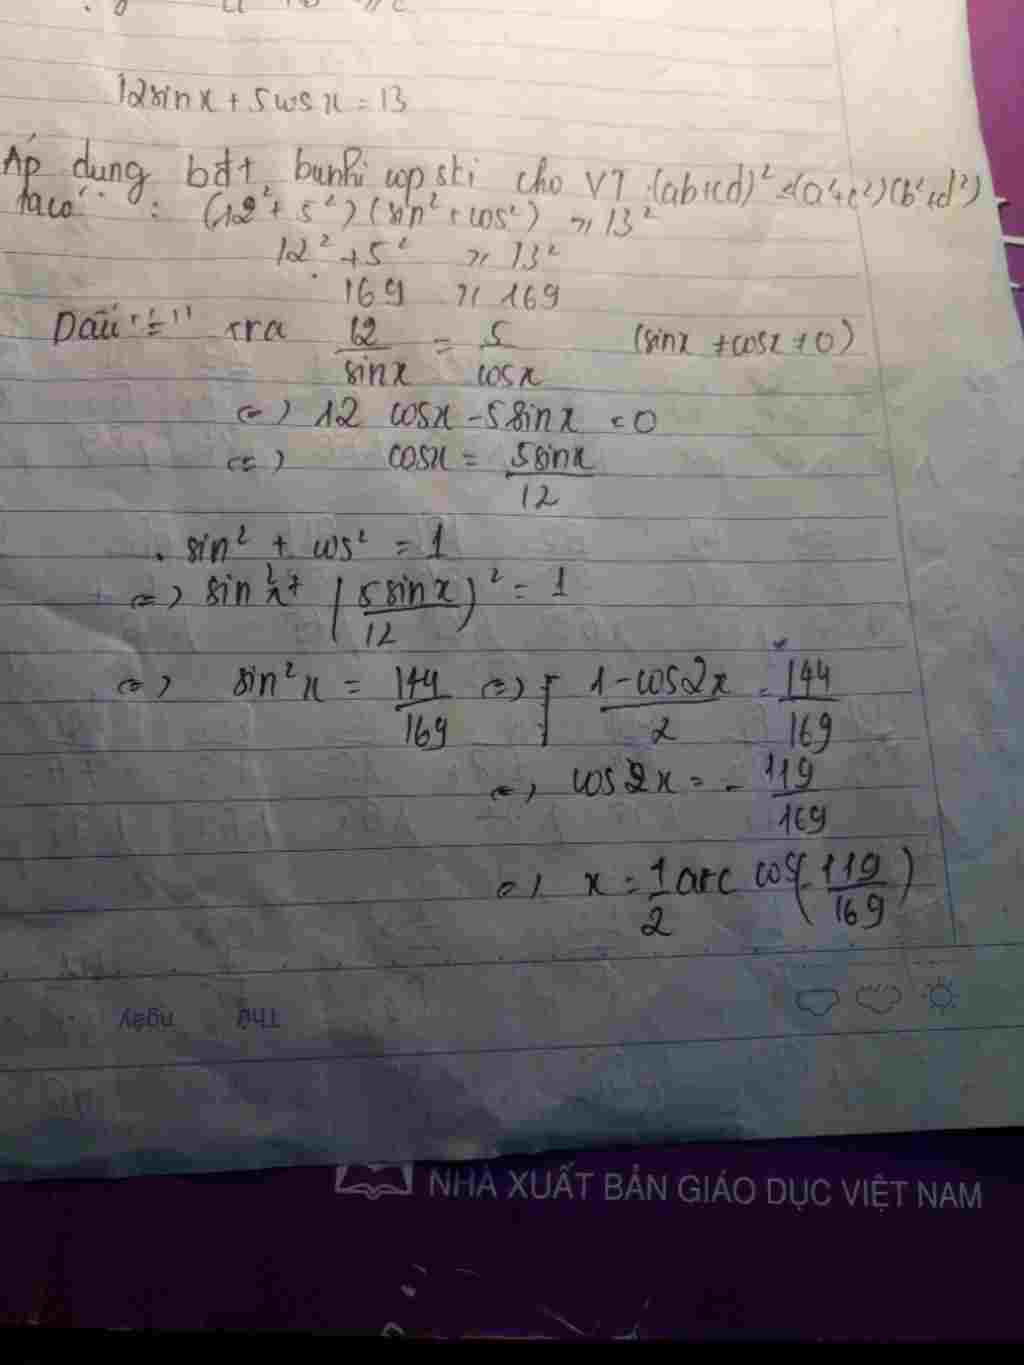 12sinx + 5cosx = 13
Áp dụng bđt bunhi cop ski cho VT : (ab+cd)² ≤ (a²+c²)(b²+d²)
ta có : (12² + 5²)(sin² + cos²) ≥ 13²
12² + 5² ≥ 13²
169 ≥ 169
Dấu "=" xra 12/sinx = 5/cosx (sinx ≠ cosx ≠ 0)
<=> 12 cosx - 5sinx = 0
<=> cosx = 5sinx/12
. sin² + cos² = 1
<=> sin²x + (5sinx/12)² = 1
<=> sin²x = 144/169 <=> 1-cos2x/2 = 144/169
<=> cos2x = -119/169
<=> x = 1/2 arc cos(-119/169)
Thứ ngày
NHÀ XUẤT BẢN GIÁO DỤC VIỆT NAM